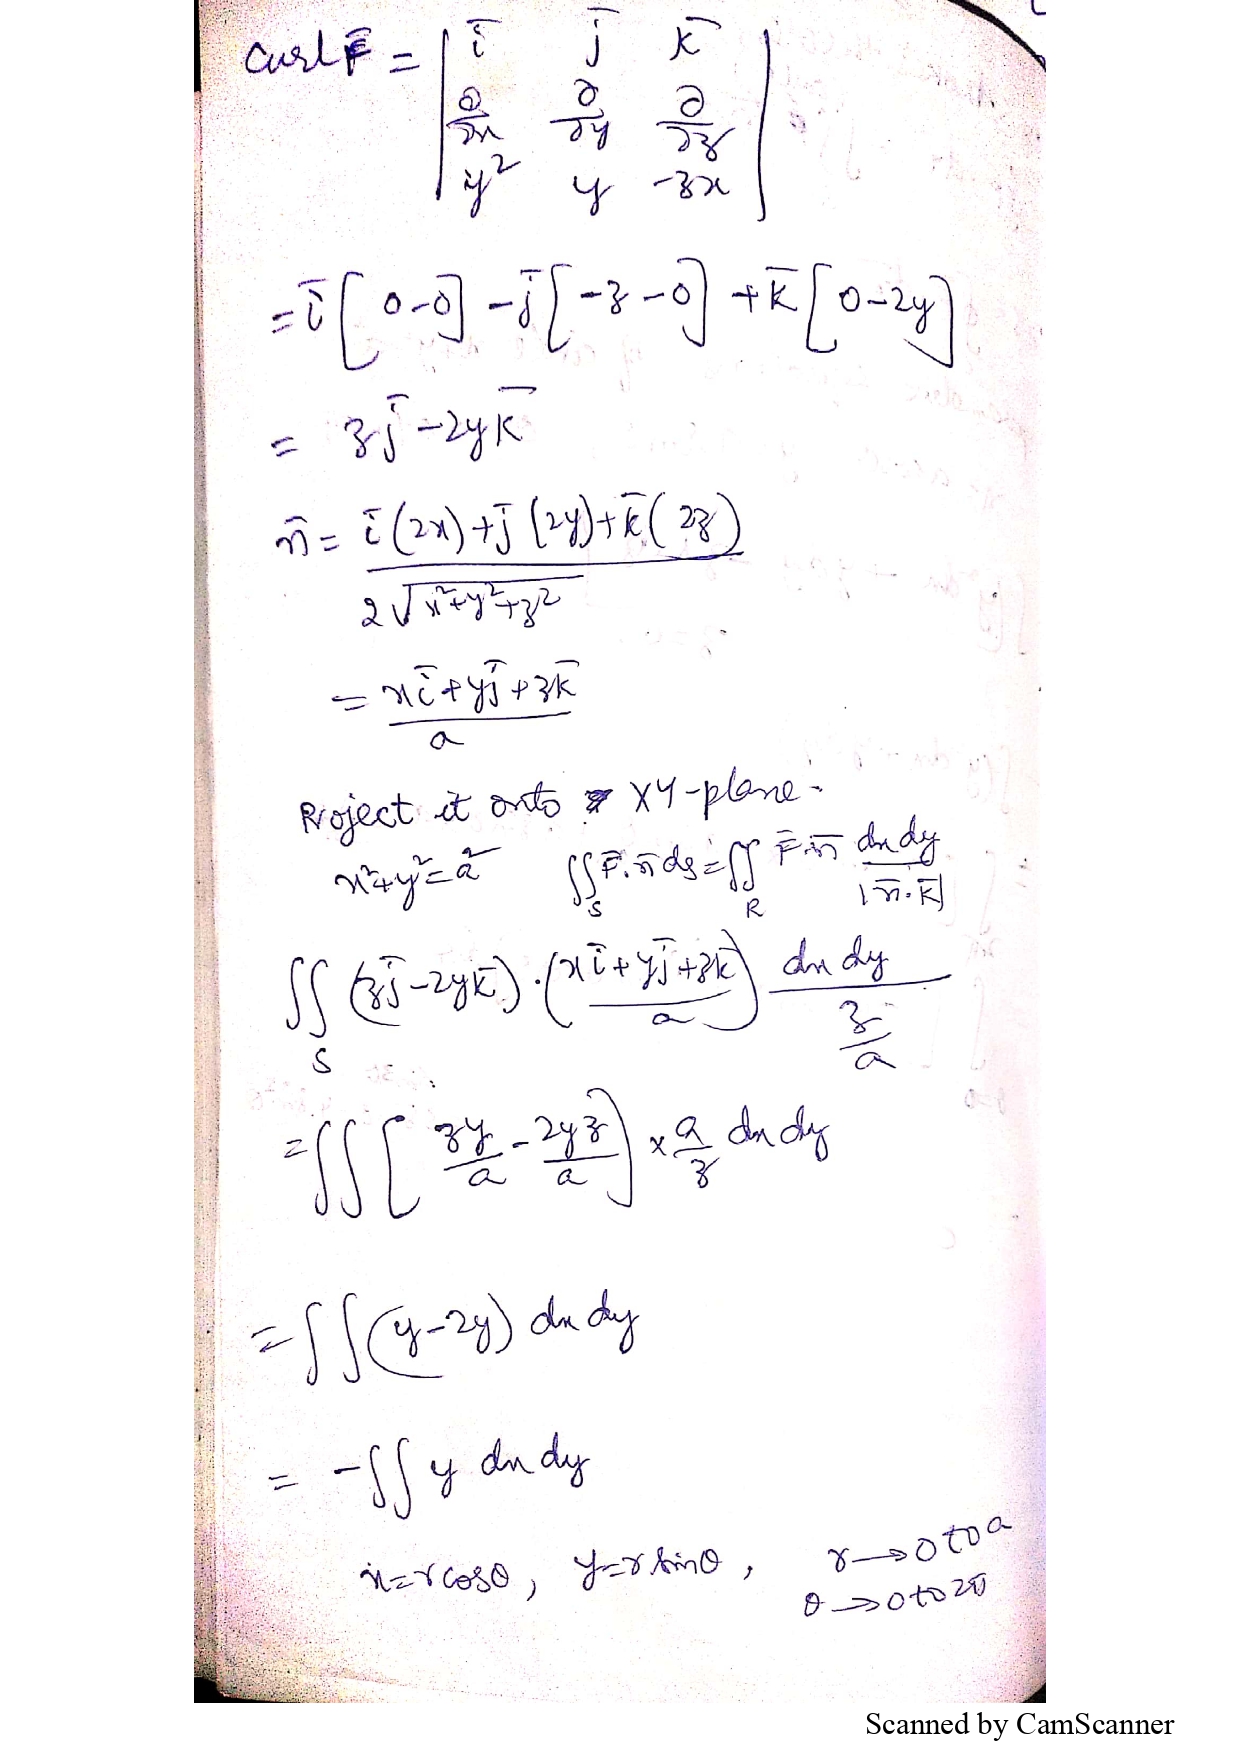 Curl F̄ = | ī j̄ k̄
∂/∂x ∂/∂y ∂/∂z
y² y -zx |
= ī [0-0] - j̄ [-z-0] + k̄ [0-2y]
= z j̄ - 2y k̄
n̄ = ī(2x) + j̄(2y) + k̄(2z) / 2√x²+y²+z²
= xī + yj̄ + zk̄ / a
Project it onto XY-plane.
x²+y²=a² ∬_S F̄.n̄ ds = ∬_R F̄.n̄ dx dy / |n̄.k̄|
∬_S (zj̄ - 2yk̄).(xī + yj̄ + zk̄ / a) dx dy / (z/a)
= ∬ [zy/a - 2yz/a] × a/z dx dy
= ∬ (y-2y) dx dy
= -∬ y dx dy
x=r cosθ, y=r sinθ, r→0 to a
θ→0 to 2π
Scanned by CamScanner